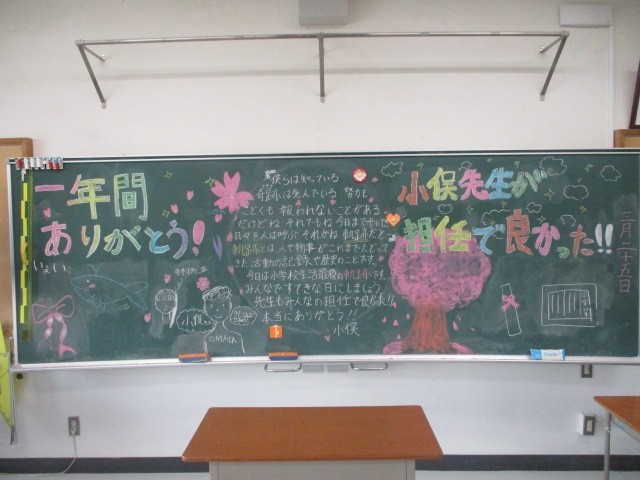 一年間
ありがとう!
僕らは知っている
奇跡は死んでいる 努力も
孤独も 報われないことがある
だけどね それでもね 今日まで歩いた
日々を人は呼ぶ それがね 軌跡だと
軌跡とは人や物事がこれまでたどって
きた活動の記録や歴史のことです。
今日は小学校生活最後の軌跡です。
みんなですてきな日にしましょう
先生もみんなの担任で良かった!!
本当にありがとう!!
小俣
OMATA
小俣先生が
担任で良かった!!
三月二十五日